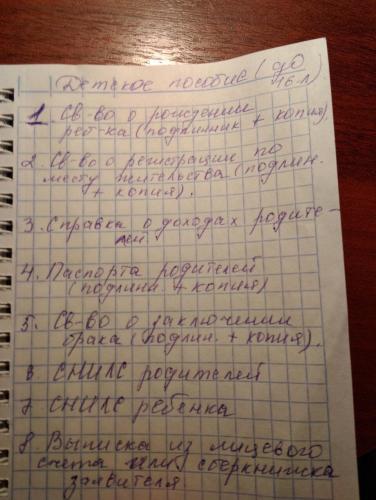 Детское пособие (до
16 л)
1. Св-во о рождении
реб-ка (подлинник + копия)
2. Св-во о регистрации по
месту жительства (подлин.
+ копия).
3. Справка о доходах родите-
лей
4. Паспорта родителей
(подлинн. + копия)
5. Св-во о заключении
брака (подлин. + копия).
6 СНИЛС родителей
7 СНИЛС ребенка
8. Выписка из лицевого
счета или сберкнижка
заявителя